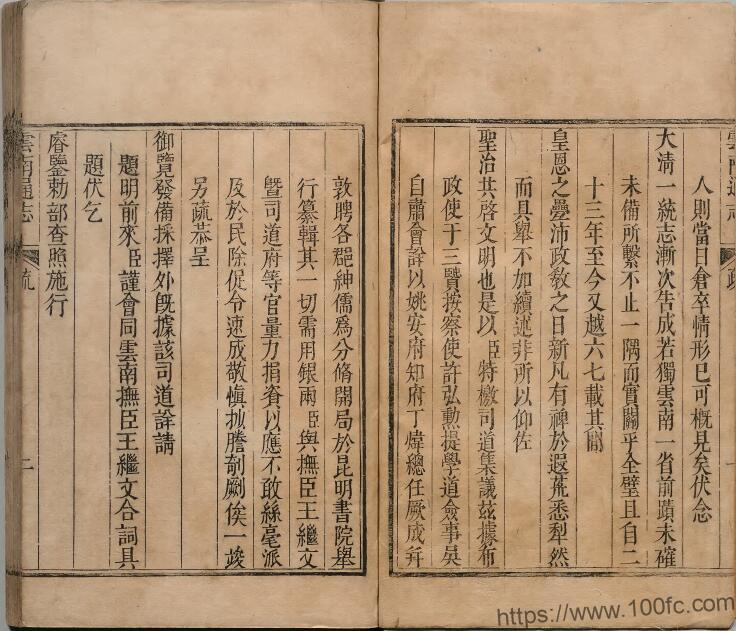 人則當日倉卒情形已可槪見矣伏念
大淸一統志漸次告成若獨雲南一省前蹟未確
未備所繫不止一隅而實關乎全璧且自二
十三年至今又越六七載其間
皇恩之疊沛政敎之日新凡有裨於遐荒悉犁然
而具舉不加續述非所以仰佐
聖治共啓文明也是以臣特檄司道集議玆據布
政使于三賢按察使許弘勲提學道僉事吳
自肅會詳以姚安府知府丁煒總任厥成幷
敦聘各郡紳儒爲分脩開局於昆明書院舉
行纂輯其一切需用銀兩臣與撫臣王繼文
曁司道府等官量力捐資以應不敢絲毫派
及於民除促令速成敬愼抛謄剞劂俟一竣
另疏恭呈
御覽發備採擇外旣據該司道詳請
題明前來臣謹會同雲南撫臣王繼文合詞具
題伏乞
睿鑒勅部查照施行
雲南通志
疏
二
https://www.100fc.com